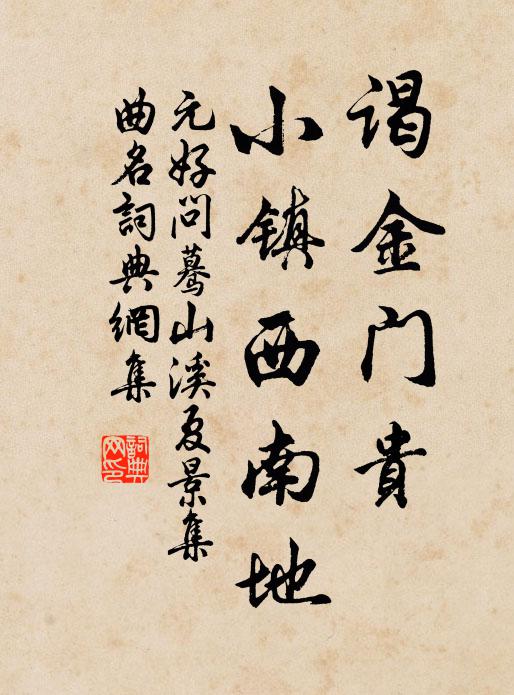 谒金门貴
小镇西南地
元好问蓦山溪夏景集
曲名詞典網集
詞典网印